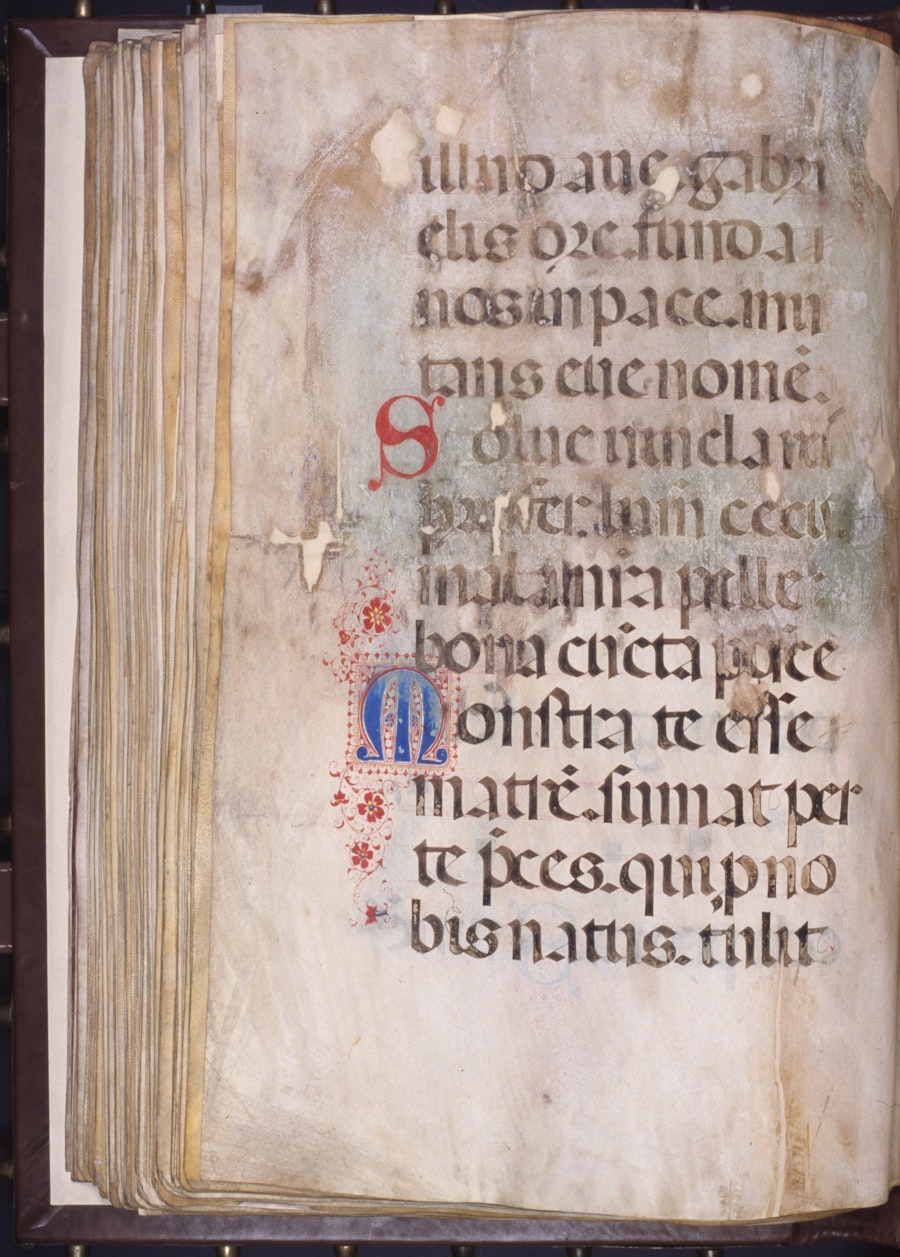 illud aue. gabri
elis ore. funda
nos in pace. mu
tans eue nomē.
Solue uincla
profer. lum̄ cecis.
mala nr̄a pelle
bona cūcta posce
Monstra te esse
matrē. sumat per
te p̄ces. qui ꝓ no
bis natus. tulit